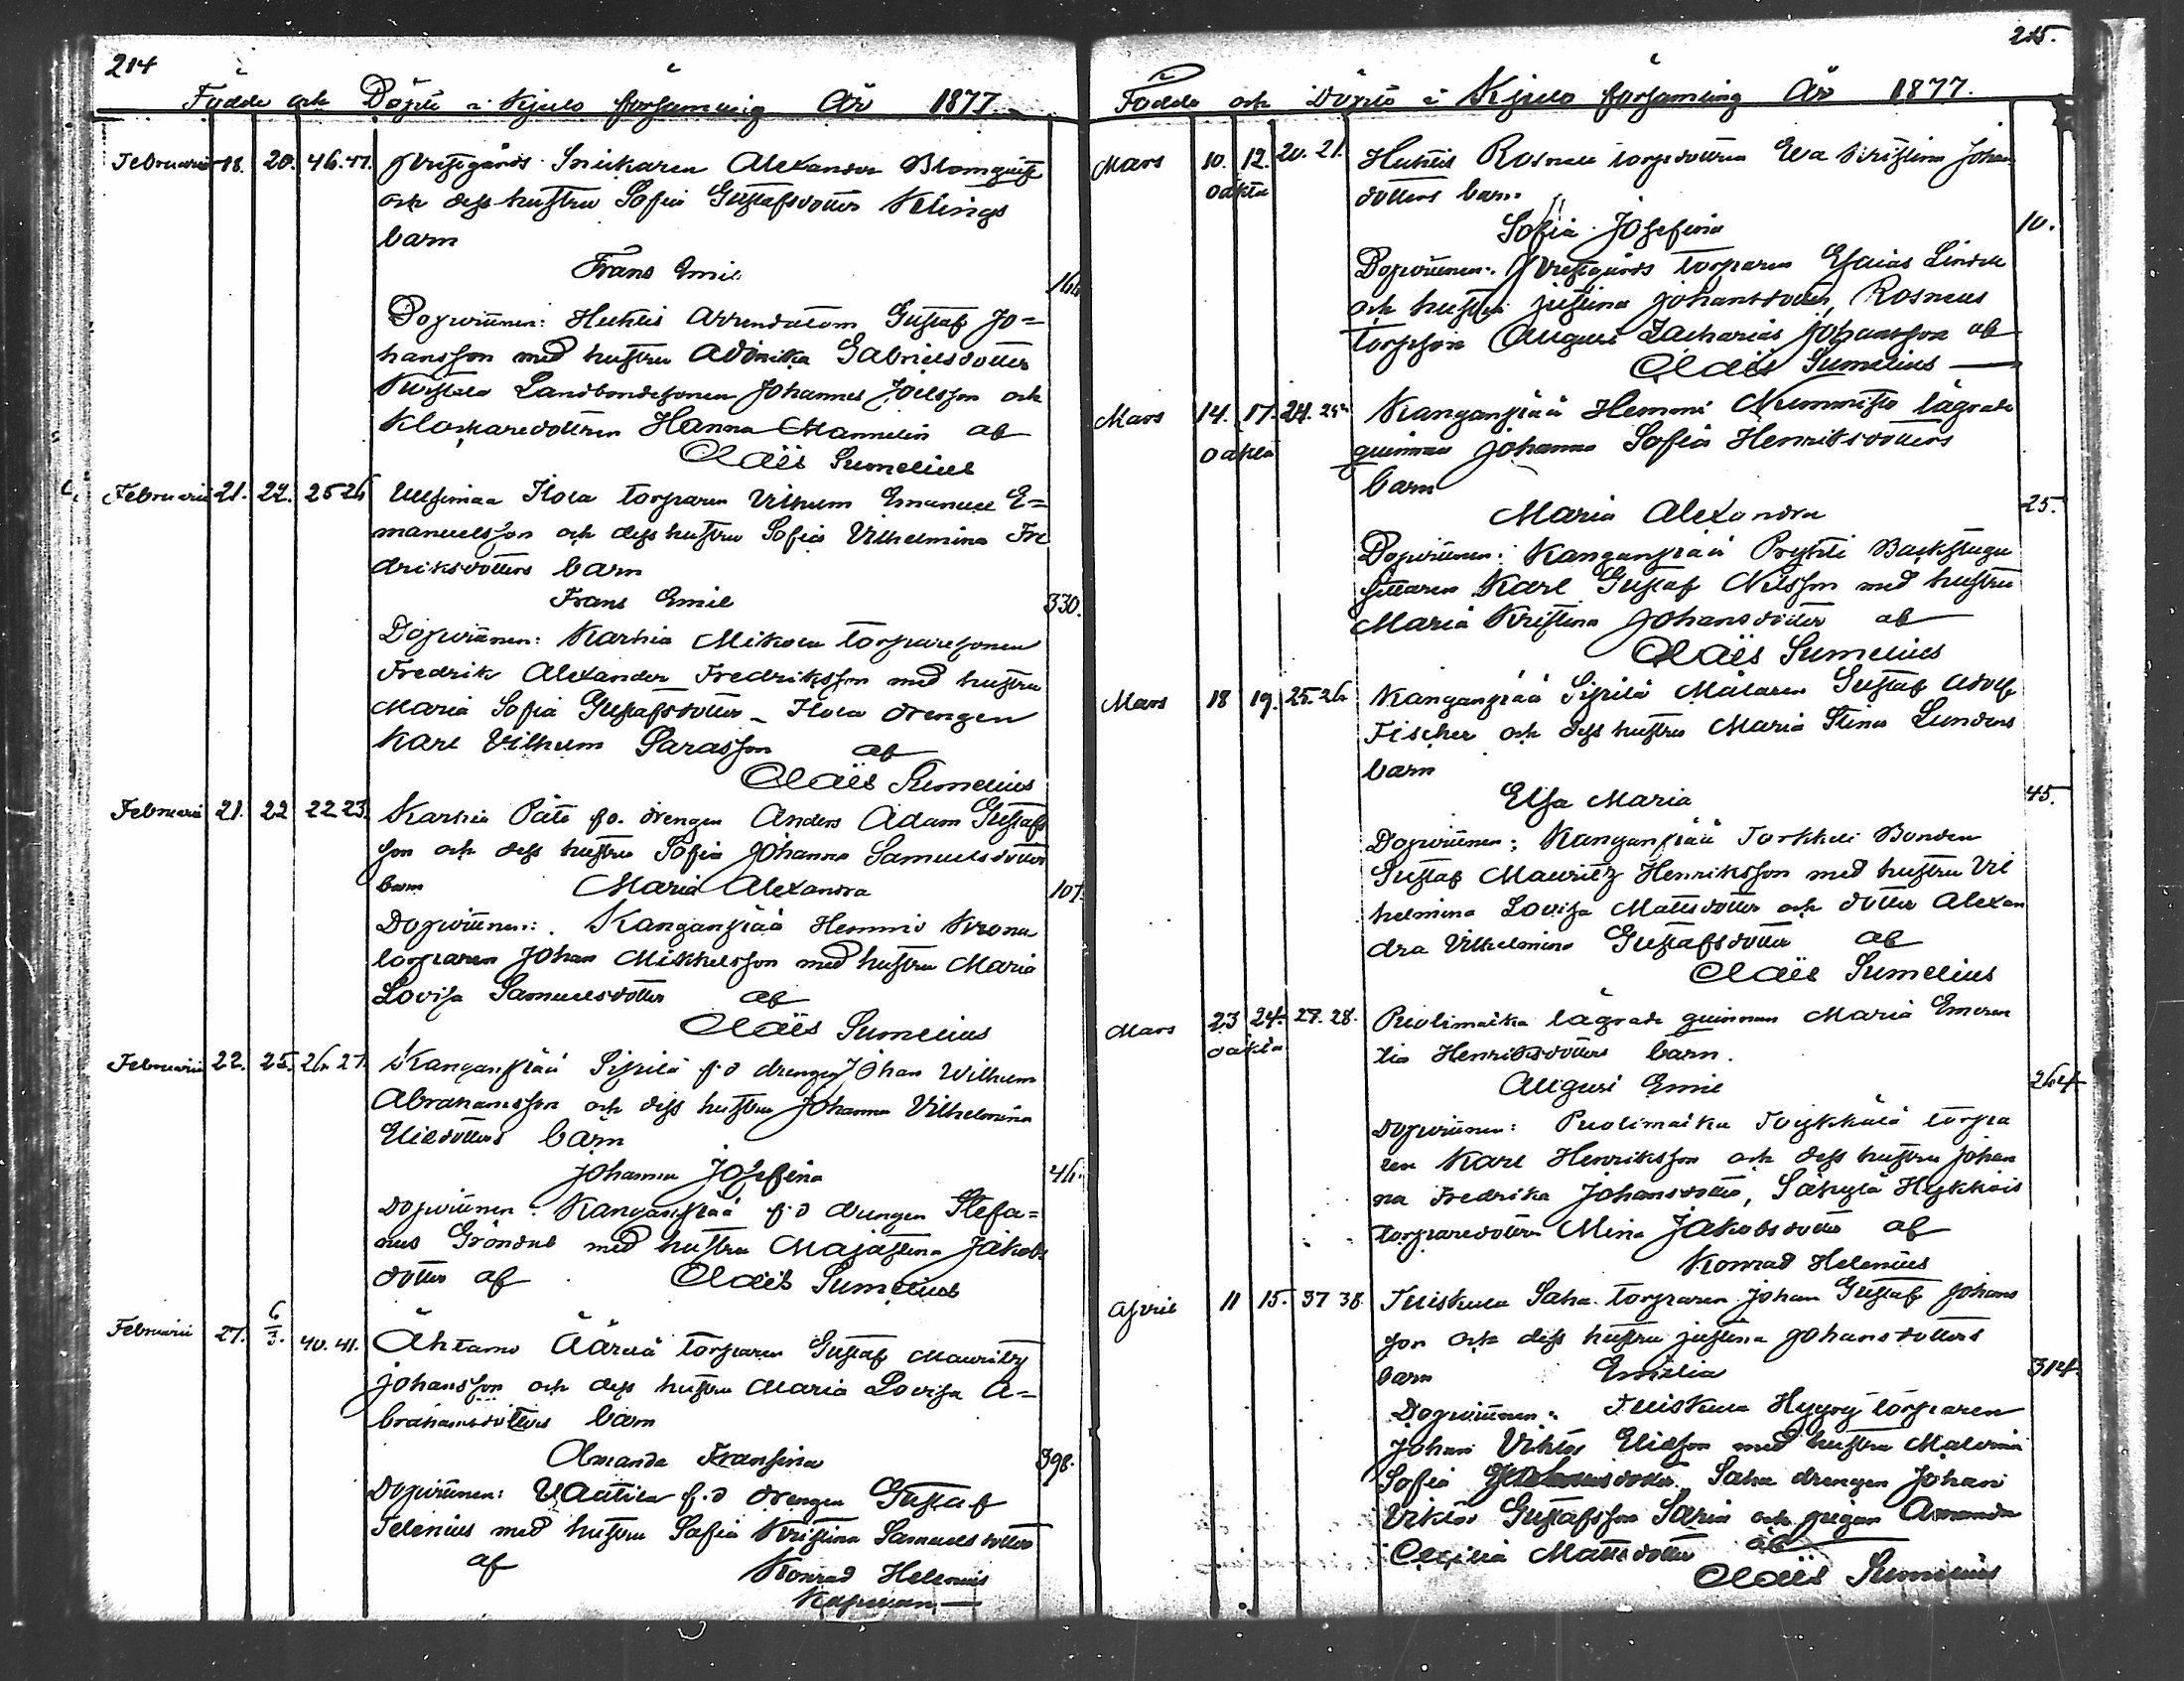 214
Födde och Döpte i Kjulo församling År 1877.
Februarii 18. 20. 46. 47. Snickaren Alexander Blomquist
och dess hustru Sofia Gustafsdotter Klings
barn
Frans Emil
Dopvittnen: Arrendatorn Gustaf Jo=
hansson med hustru Adrika Gabrielsdotter
Landbondesonen Johannes Joelsson och
Klockaredottren Hanna Mannelin af
Claës Sumelius
Februarii 21. 22. 25 26 Uusimaa Ilola torparen Vilhem Emanuel E=
manuelsson och dess hustru Sofia Vilhelmina Fre
driksdotters barn
Frans Emil 330.
Dopvittnen: Karhia Mikola torparesonen
Fredrik Alexander Fredriksson med hustru
Maria Sofia Gustafsdotter – Ilola drengen
Karl Vilhem Sarasson af
Claës Sumelius
Februarii 21. 22 22 23. Karhia Päto f.d. drengen Anders Adam Gustafs
son och dess hustru Sofia Johanna Samuelsdotter
barn Maria Alexandra 107.
Dopvittnen: Kanganpää Hemmi Krono
torparen Johan Mikkelsson med hustru Maria
Lovisa Samuelsdotter af
Claës Sumelius
Februarii 22. 25. 26. 27. Kanganpää Sipilä f.d drengen Johan Wilhem
Abrahamsson och dess hustru Johanna Vilhelmina
Eliedotters barn
Johanna Josefina 46.
Dopvittnen: Kanganpää f.d drengen Stefa=
nus Gröndal med hustru Majastina Jakobs
dotter af Claës Sumelius
Februarii 27. 6/3. 40. 41. Ähtamo Äärilä torparen Gustaf Mauritz
Johansson och dess hustru Maria Lovisa A=
brahamsdotters barn
Amanda Fransina 398.
Dopvittnen: Vaatila f.d drengen Gustaf
Telenius med hustru Sofia Kristina Samuelsdotter
af Konrad Helenius
Kaplan
215.
Födde och Döpte i Kjulo församling År 1877.
Mars 10. 12. 20. 21. Rosnell torpdottren Eva Kristina Johans
oäkta dotters barn
Sofia Josefina 10.
Dopvittnen: torparen Esaias Lindell
och hustru Justina Johansdotter, Rosnells
torpson August Zacharias Johansson af
Claës Sumelius
Mars 14. 17. 24. 25 Kanganpää Hemmi Nummisto lägrade
oäkta quinnan Johanna Sofia Henriksdotters
barn
Maria Alexandra 25.
Dopvittnen: Kanganpää Prykti Backstugu
sittaren Karl Gustaf Nilsson med hustru
Maria Kristina Johansdotter af
Claës Sumelius
Mars 18 19. 25. 26. Kanganpää Sipilä Målaren Gustaf Adolf
Fischer och dess hustru Maria Stina Lundens
barn
Elsa Maria 45.
Dopvittnen: Kanganpää Torkkeli Bonden
Gustaf Mauritz Henriksson med hustru Vil
helmina Lovisa Mattsdotter och dotter Alexan
dra Vilhelmina Gustafsdotter af
Claës Sumelius
Mars 23 24. 27. 28. Puolimatka lägrade quinnan Maria Emeren
oäkta tia Henriksdotters barn.
August Emil 264
Dopvittnen: Puolimatka torpa
ren Karl Henriksson och dess hustru Johan
na Fredrika Johansdotter, Säkylä
torparedottren Mina Jakobsdotter af
Konrad Helenius
April 11 15. 37 38. Tuiskula Saha torparen Johan Gustaf Johans
son och dess hustru Justina Johansdotters
barn Emilia 314.
Dopvittnen: Tuiskula torparen
Johan Viktor Eliasson med hustru Malvina
Sofia Saha drengen Johan
Viktor Gustafsson Saris och pigan Amanda
Cecilia Mattsdotter af
Claës Sumelius